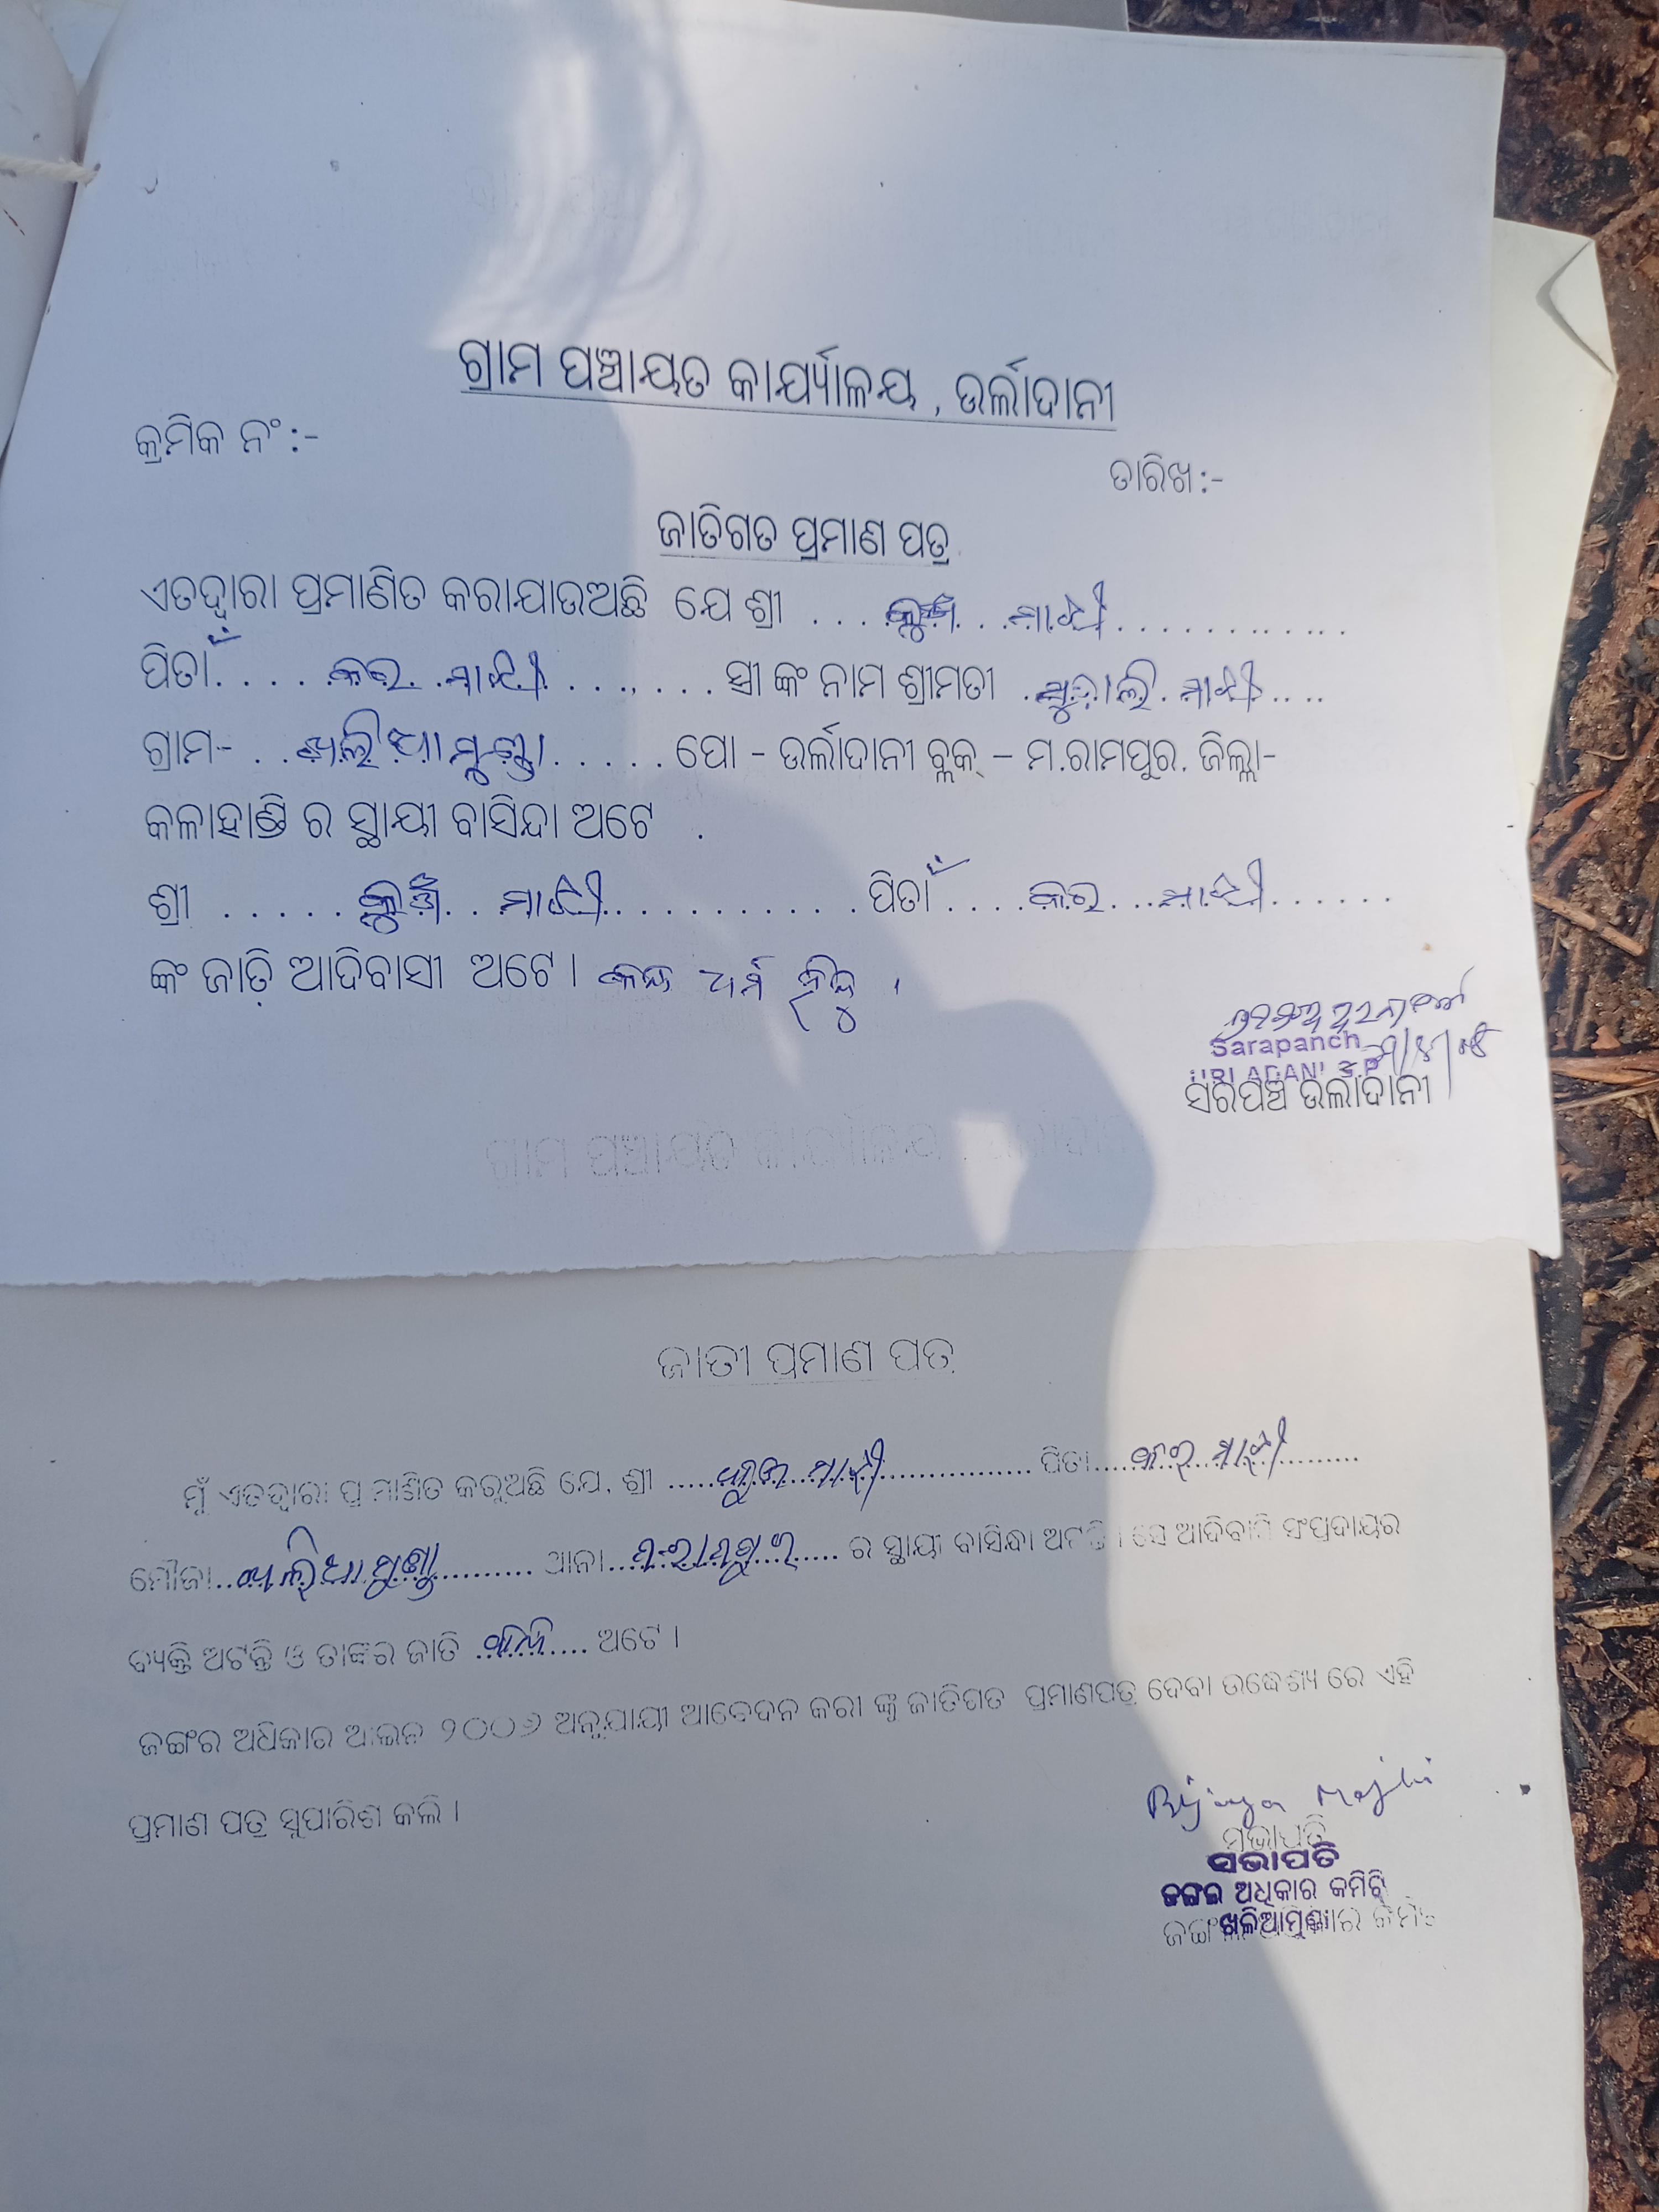 ଗ୍ରାମ ପଞ୍ଚାୟତ କାର୍ଯ୍ୟାଳୟ , ଉର୍ଲାଦାନୀ
କ୍ରମିକ ନଂ :-
ତାରିଖ :-
ଜାତିଗତ ପ୍ରମାଣ ପତ୍ର
ଏତଦ୍ୱାରା ପ୍ରମାଣିତ କରାଯାଉଅଛି ଯେ ଶ୍ରୀ . . . . . . ମାଝୀ . . . . . . . . . . . .
ପିତାଁ . . . . କର . ମାଝୀ . . . . . . . . ସ୍ତ୍ରୀ ଙ୍କ ନାମ ଶ୍ରୀମତୀ . . ମାଝୀ . . . .
ଗ୍ରାମ- . . ଖଲିଆମୁଣ୍ଡା . . . . . ପୋ - ଉର୍ଲାଦାନୀ ବ୍ଲକ୍ – ମ.ରାମପୁର. ଜିଲ୍ଲା-
କଳାହାଣ୍ଡି ର ସ୍ଥାୟୀ ବାସିନ୍ଦା ଅଟେ .
ଶ୍ରୀ . . . . . . . ମାଝୀ . . . . . . . . . . . ପିତାଁ . . . . କର . . . ମାଝୀ . . . . . .
ଙ୍କ ଜାତି ଆଦିବାସୀ ଅଟେ । କନ୍ଧ ଧର୍ମ ହିନ୍ଦୁ ।
Sarapanch
URLADANI G.P
ସରପଞ୍ଚ ଉର୍ଲାଦାନୀ
ଗ୍ରାମ ପଞ୍ଚାୟତ କାର୍ଯ୍ୟାଳୟ
ଜାତୀ ପ୍ରମାଣ ପତ୍ର
ମୁଁ ଏତଦ୍ୱାରା ପ୍ରମାଣିତ କରୁଅଛି ଯେ, ଶ୍ରୀ ..... ମାଝୀ .............. ପିତା..... କର ମାଝୀ .........
ମୌଜା.. ଖଲିଆମୁଣ୍ଡା .......... ଥାନା.. ମ.ରାମପୁର ..... ର ସ୍ଥାୟୀ ବାସିନ୍ଧା ଅଟନ୍ତି । ସେ ଆଦିବାସି ସଂପ୍ରଦାୟର
ବ୍ୟକ୍ତି ଅଟନ୍ତି ଓ ତାଙ୍କର ଜାତି ......... ଅଟେ ।
ଜଙ୍ଗର ଅଧିକାର ଆଇନ ୨୦୦୬ ଅନୁଯାୟୀ ଆବେଦନ କରୀ ଙ୍କୁ ଜାତିଗତ ପ୍ରମାଣପତ୍ର ଦେବା ଉଦ୍ଧେଶ୍ୟ ରେ ଏହି
ପ୍ରମାଣ ପତ୍ର ସୁପାରିଶ କଲି ।
Bijaya Majhi
ସଭାପତି
ସଭାପତି
ଜଙ୍ଗଲ ଅଧିକାର କମିଟି
ଖଲିଆମୁଣ୍ଡା